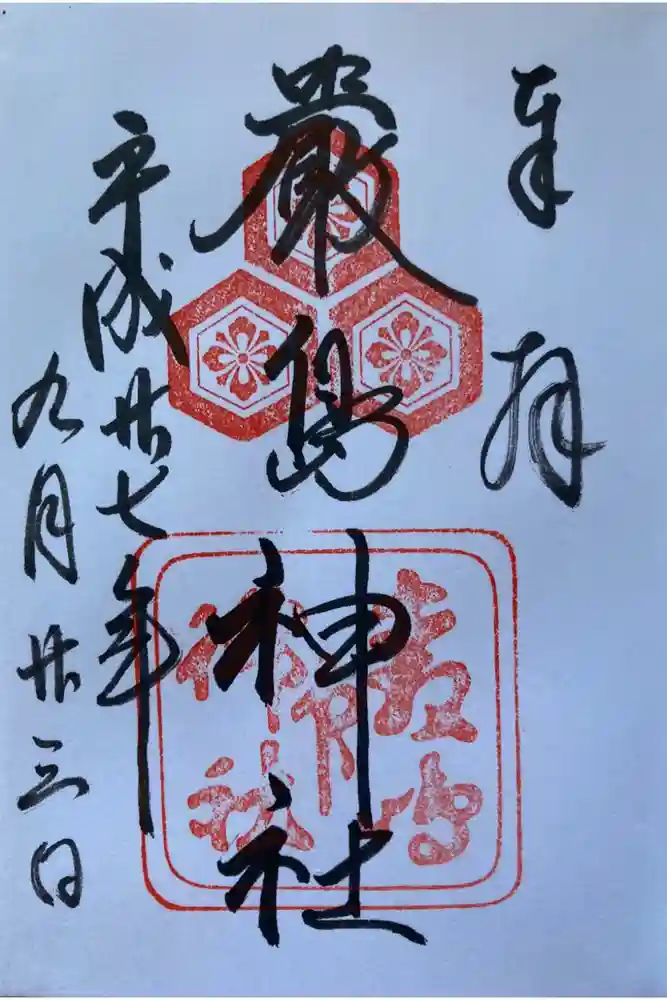 奉拝
嚴島神社
平成廿七年
九月廿三日